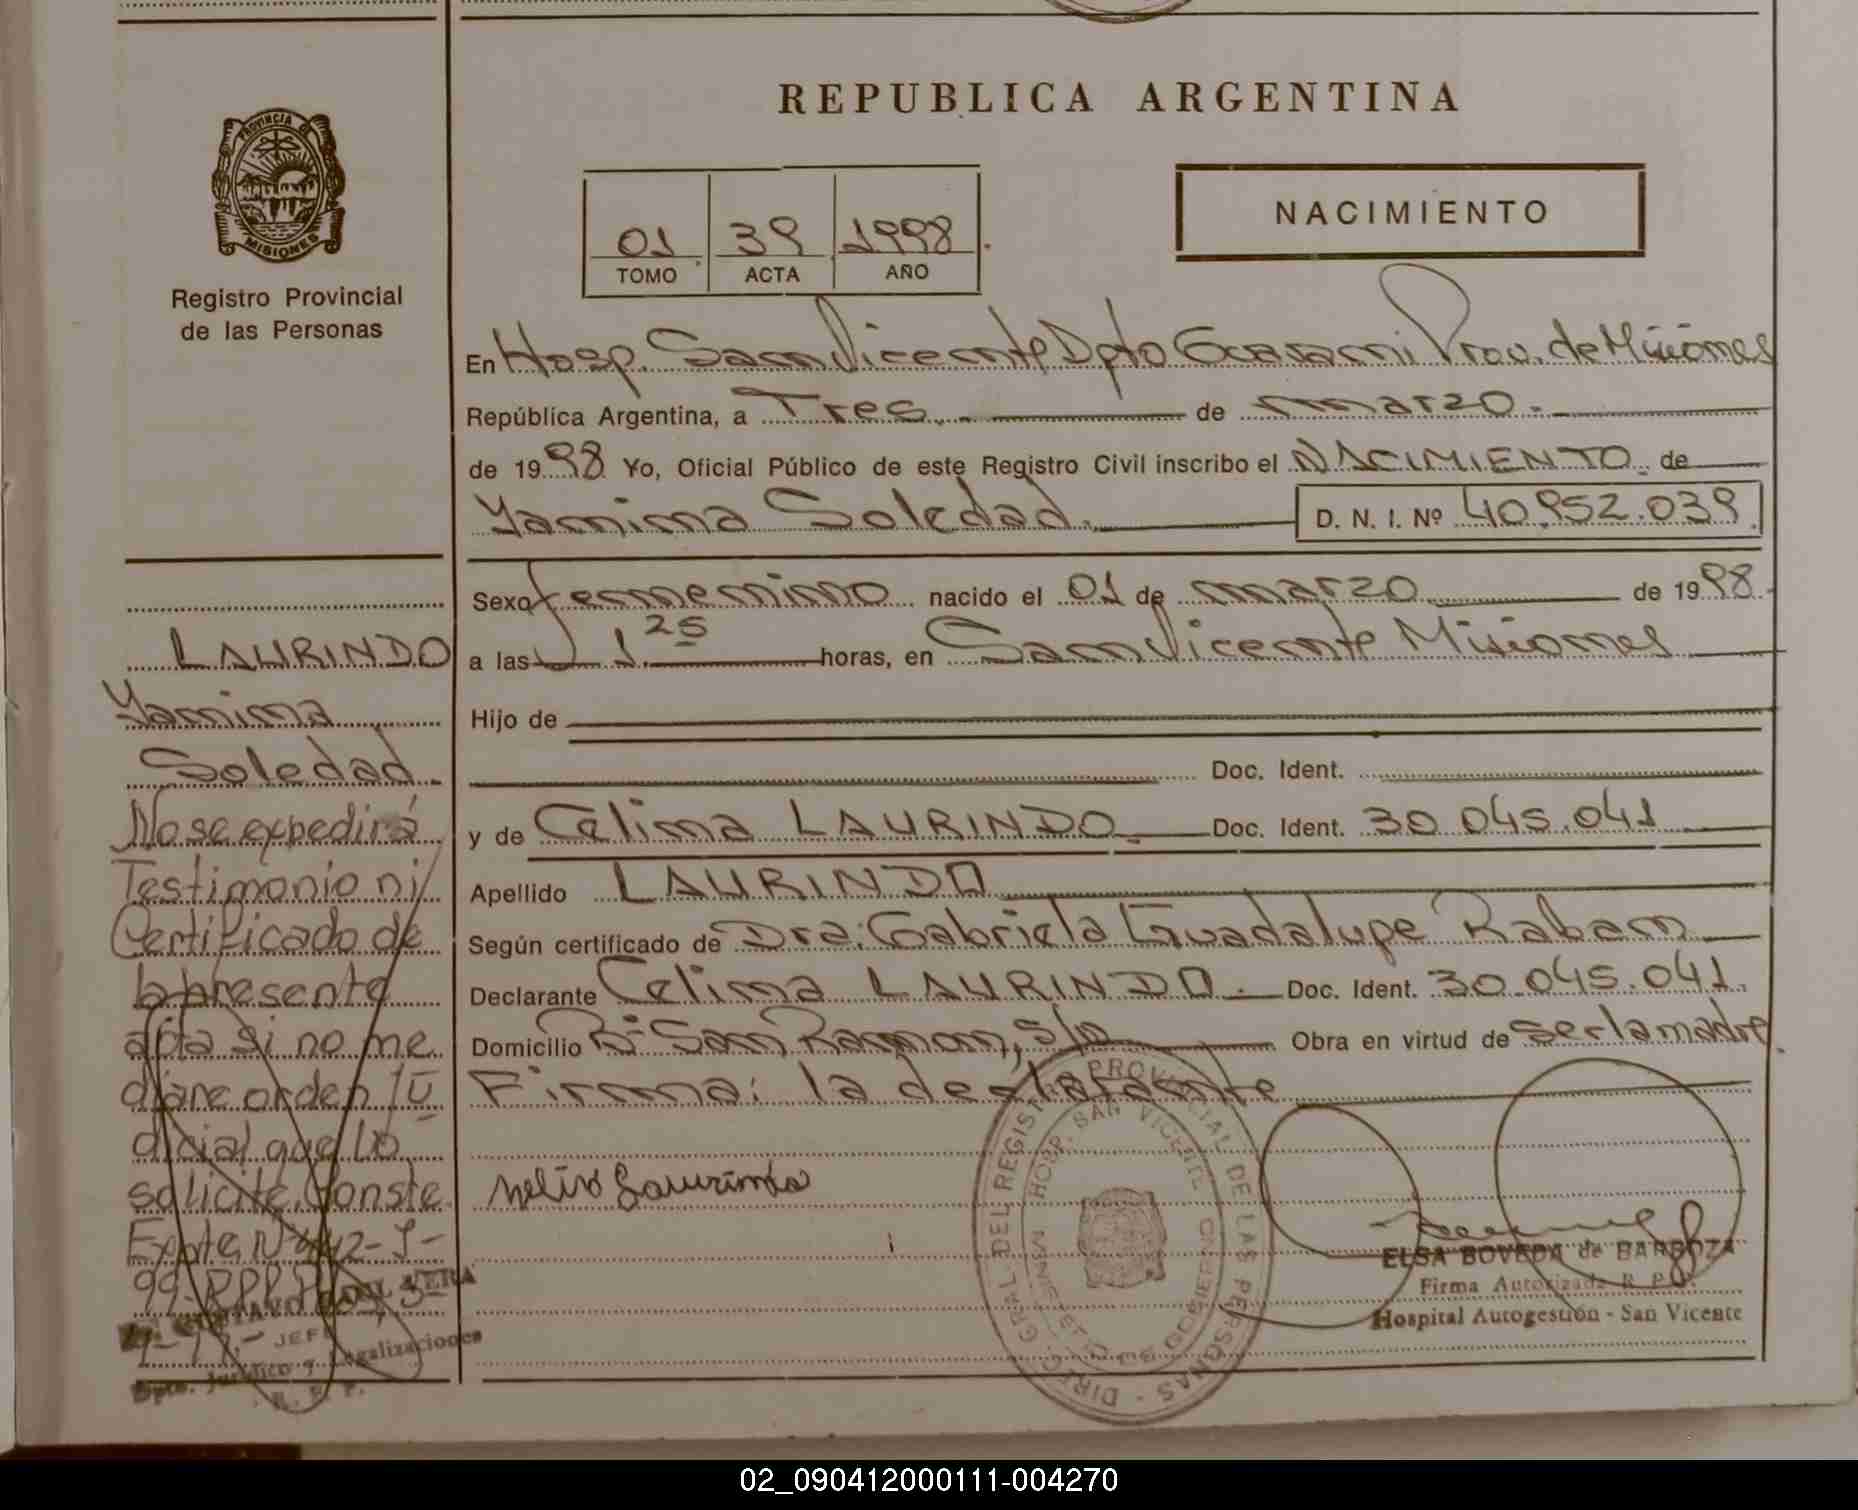 REPUBLICA ARGENTINA
PROVINCIA DE
MISIONES
Registro Provincial
de las Personas
01 39 1998
TOMO ACTA AÑO
NACIMIENTO
En Hosp. San Vicente Dpto Guarani Prov. de Misiones
República Argentina, a Tres de marzo.
de 1998 Yo, Oficial Público de este Registro Civil inscribo el NACIMIENTO. de
Yamima Soledad. D. N. I. Nº 40.952.039
Sexo femenino nacido el 01 de marzo de 1998.
a las 1.25 horas, en San Vicente Misiones
Hijo de
Doc. Ident.
y de Celima LAURINDO Doc. Ident. 30 045.041
Apellido LAURINDO
Según certificado de Dra. Gabriela Guadalupe Raban
Declarante Celima LAURINDO. Doc. Ident. 30.045.041.
Domicilio Bº San Ramon, s/n Obra en virtud de ser la madre
Firma: la declarante
LAURINDO
Yamima
Soledad.
No se expedirá
Testimonio ni
Certificado de
la presente
acta si no me
diare orden Ju
dicial que lo
solicite. Conste.
Expte. Nº
99-R.P.P.
JEFE
Dpto. Jurídico y Legalizaciones
R. P. P.
Laurindo
DIREC. GRAL DEL REGISTRO PROVINCIAL DE LAS PERSONAS
HOSP. SAN VICENTE
MINISTERIO DE GOBIERNO
ELSA BOVEDA de BARBOZA
Firma Autorizada R. P. P.
Hospital Autogestión - San Vicente
02_090412000111-004270